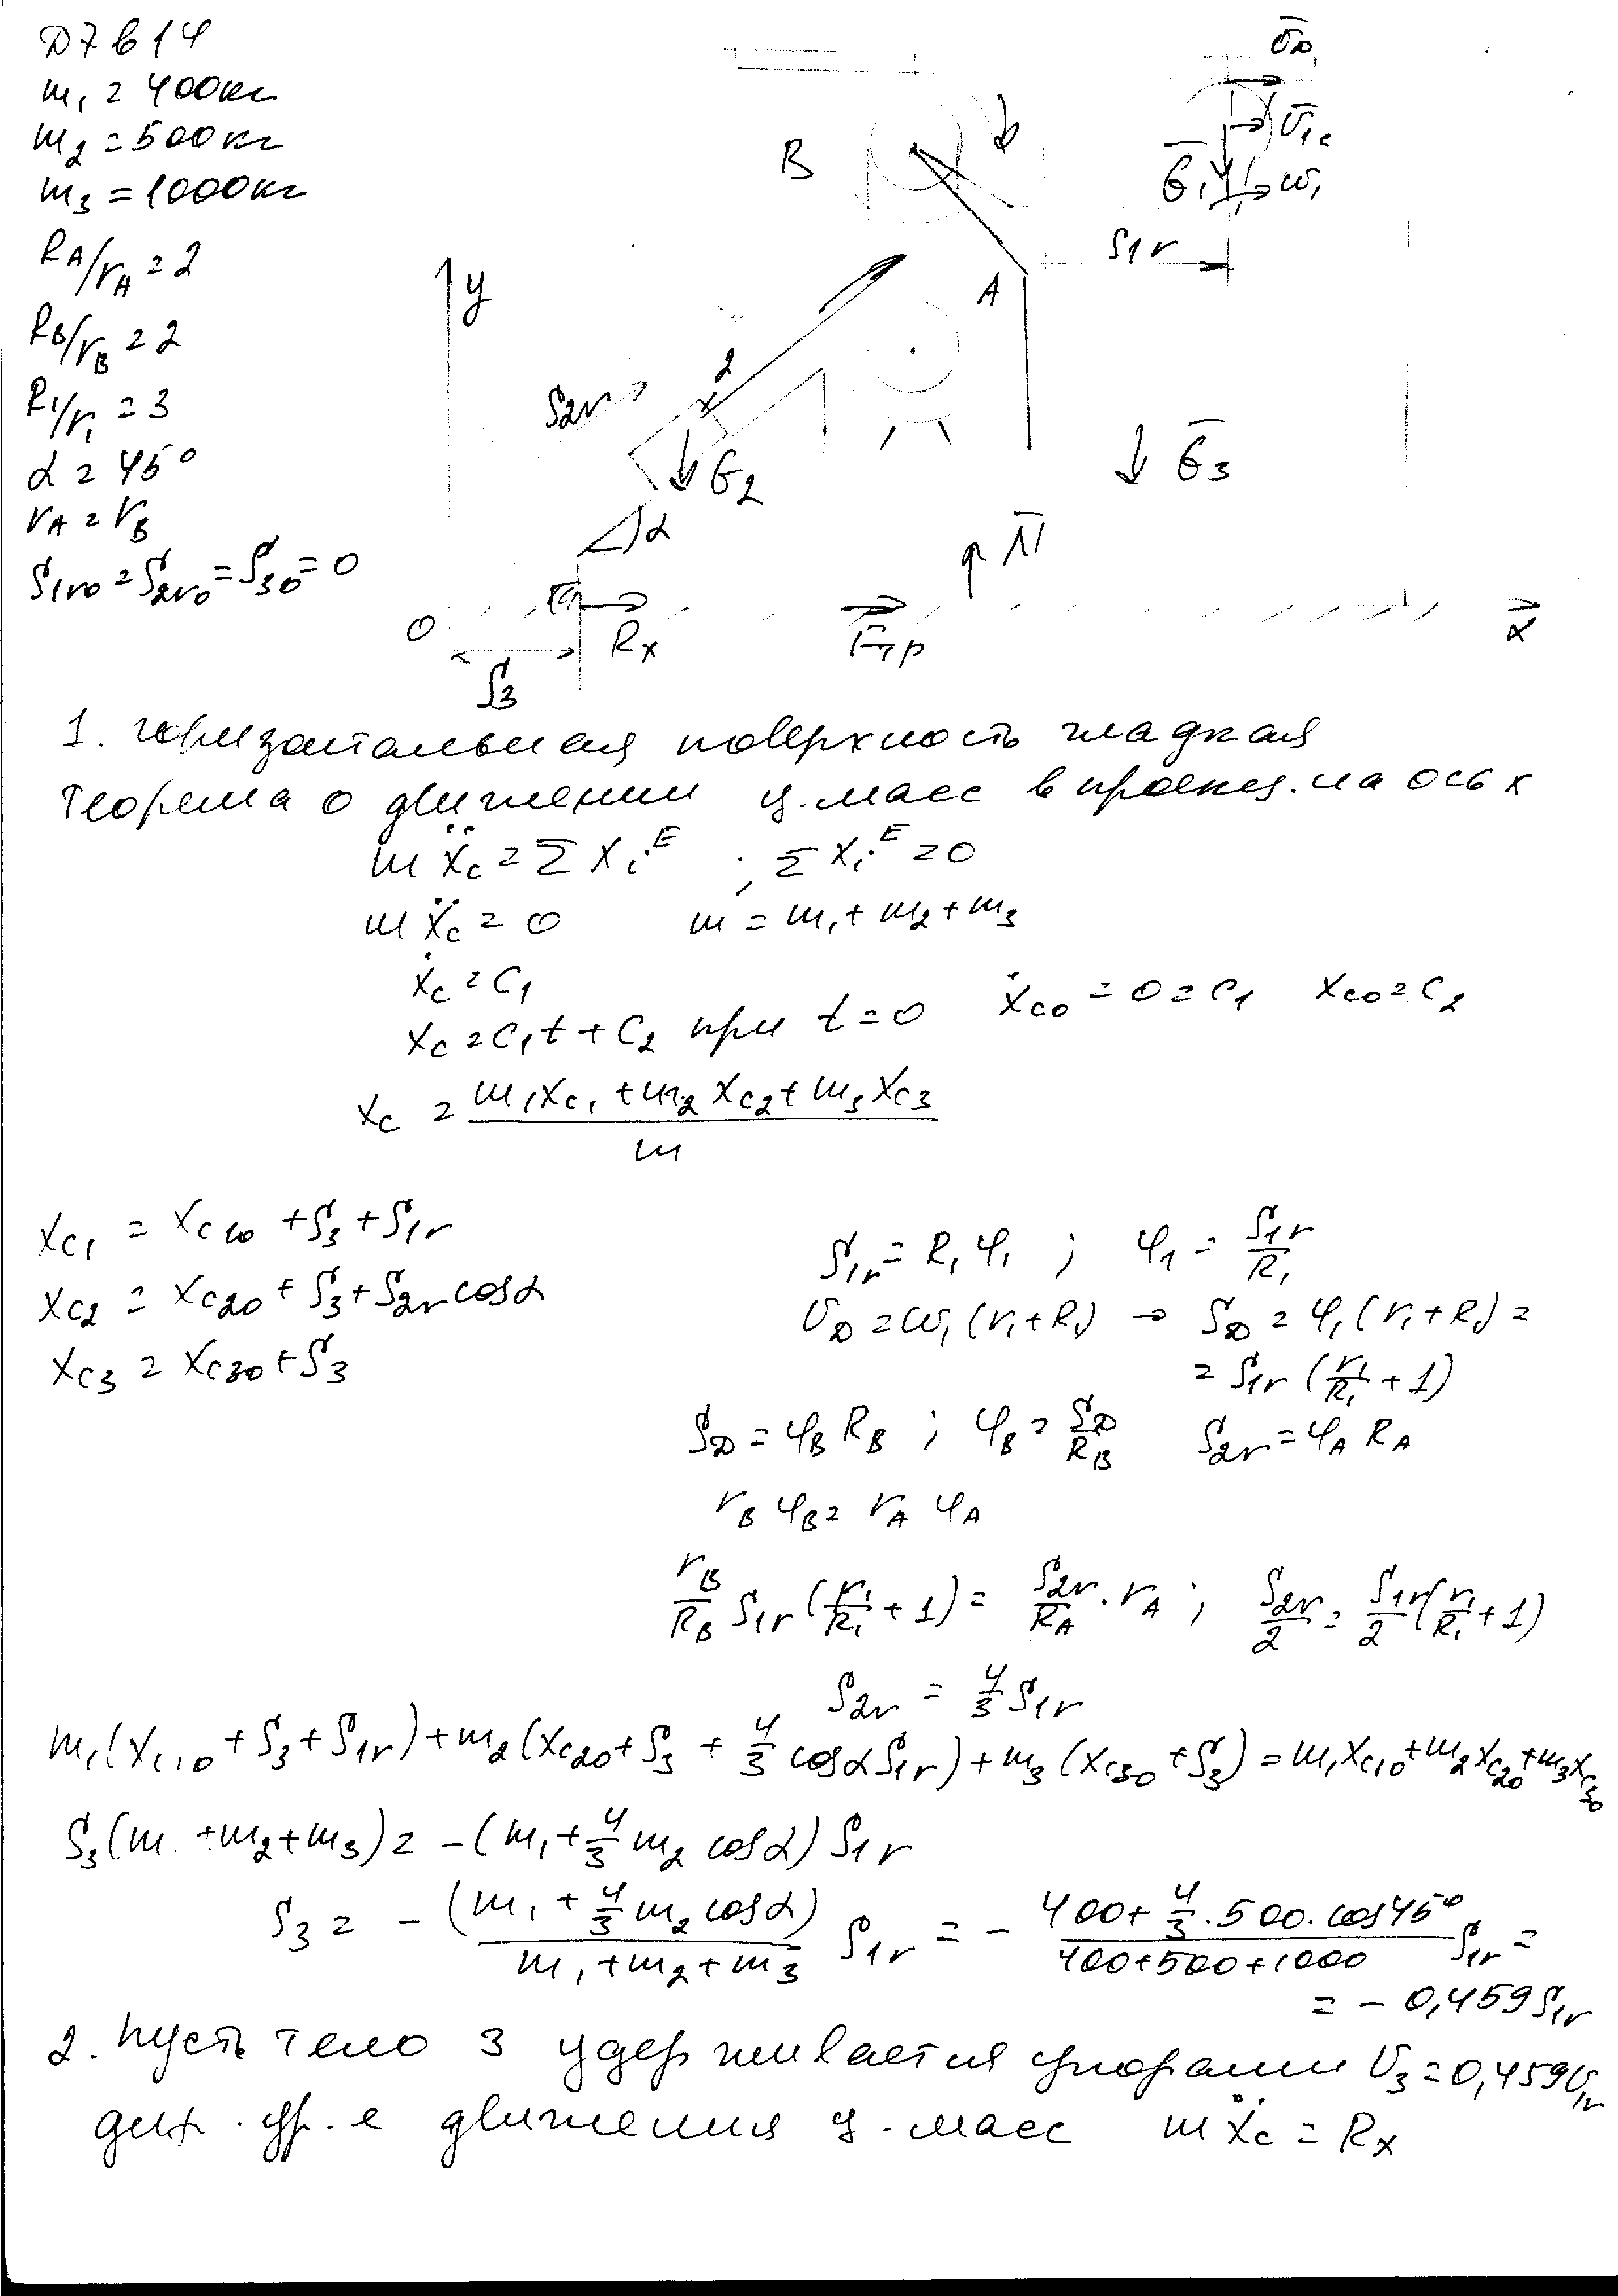 Д7 в 14
m₁ = 400кг
m₂ = 500кг
m₃ = 1000кг
R_A/r_A = 2
R_B/r_B = 2
R₁/r₁ = 3
α = 45°
r_A = r_B
S₁ᵣ₀ = S₂ᵣ₀ = S₃₀ = 0
B
A
y
S₁ᵣ
S₂ᵣ
2
α
O
S₃
R_x
F_тр
N̄
x
Ḡ₃
G₂
Ḡ₁
ω₁
Ū₁c
Ū_D
1. Горизонтальная поверхность гладкая
Теорема о движении ц.масс в проекц. на ось x
mẍ_c = Σ X_i^E ; Σ X_i^E = 0
mẍ_c = 0 m = m₁ + m₂ + m₃
ẋ_c = C₁
x_c = C₁t + C₂ при t = 0 ẋ_c0 = 0 = C₁ x_c0 = C₂
x_c = (m₁x_c₁ + m₂x_c₂ + m₃x_c₃)/m
x_c₁ = x_c₁₀ + S₃ + S₁ᵣ
x_c₂ = x_c₂₀ + S₃ + S₂ᵣ cosα
x_c₃ = x_c₃₀ + S₃
S₁ᵣ = R₁φ₁ ; φ₁ = S₁ᵣ/R₁
U_D = ω₁(r₁+R₁) → S_D = φ₁(r₁+R₁) =
= S₁ᵣ(r₁/R₁ + 1)
S_D = φ_B R_B ; φ_B = S_D/R_B S₂ᵣ = φ_A R_A
r_B φ_B = r_A φ_A
r_B/R_B S₁ᵣ(r₁/R₁ + 1) = S₂ᵣ/R_A · r_A ; S₂ᵣ/2 = S₁ᵣ/2 (r₁/R₁ + 1)
S₂ᵣ = 4/3 S₁ᵣ
m₁(x_c₁₀ + S₃ + S₁ᵣ) + m₂(x_c₂₀ + S₃ + 4/3 cosα S₁ᵣ) + m₃(x_c₃₀ + S₃) = m₁x_c₁₀ + m₂x_c₂₀ + m₃x_c₃₀
S₃(m₁ + m₂ + m₃) = -(m₁ + 4/3 m₂ cosα) S₁ᵣ
S₃ = - (m₁ + 4/3 m₂ cosα)/(m₁ + m₂ + m₃) S₁ᵣ = - (400 + 4/3 · 500 · cos45°)/(400 + 500 + 1000) S₁ᵣ =
= - 0,459 S₁ᵣ
2. Пусть тело 3 удерживается упорами U₃ = 0,459U₁ᵣ
диф. ур.е движения ц.масс mẍ_c = R_x